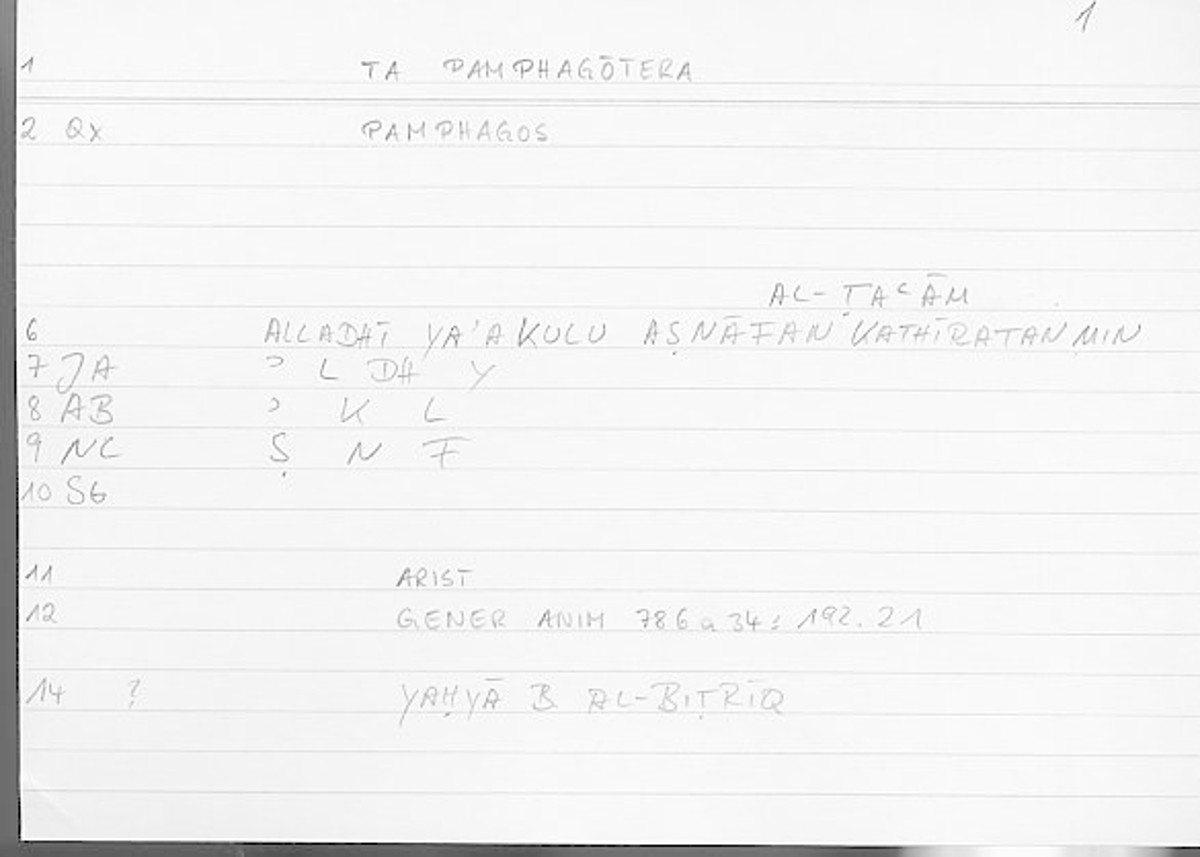 1
1 TA PAMPHAGŌTERA
2 Qx PAMPHAGOS
AL-ṬAᶜĀM
6 ALLADHĪ YA'AKULU AṢNĀFAN KATHĪRATAN MIN
7 JA ʾ L DH Y
8 AB ʾ K L
9 NC Ṣ N F
10 SG
11 ARIST
12 GENER ANIM 786a34: 192.21
14 ? YAḤYĀ B AL-BIṬRĪQ